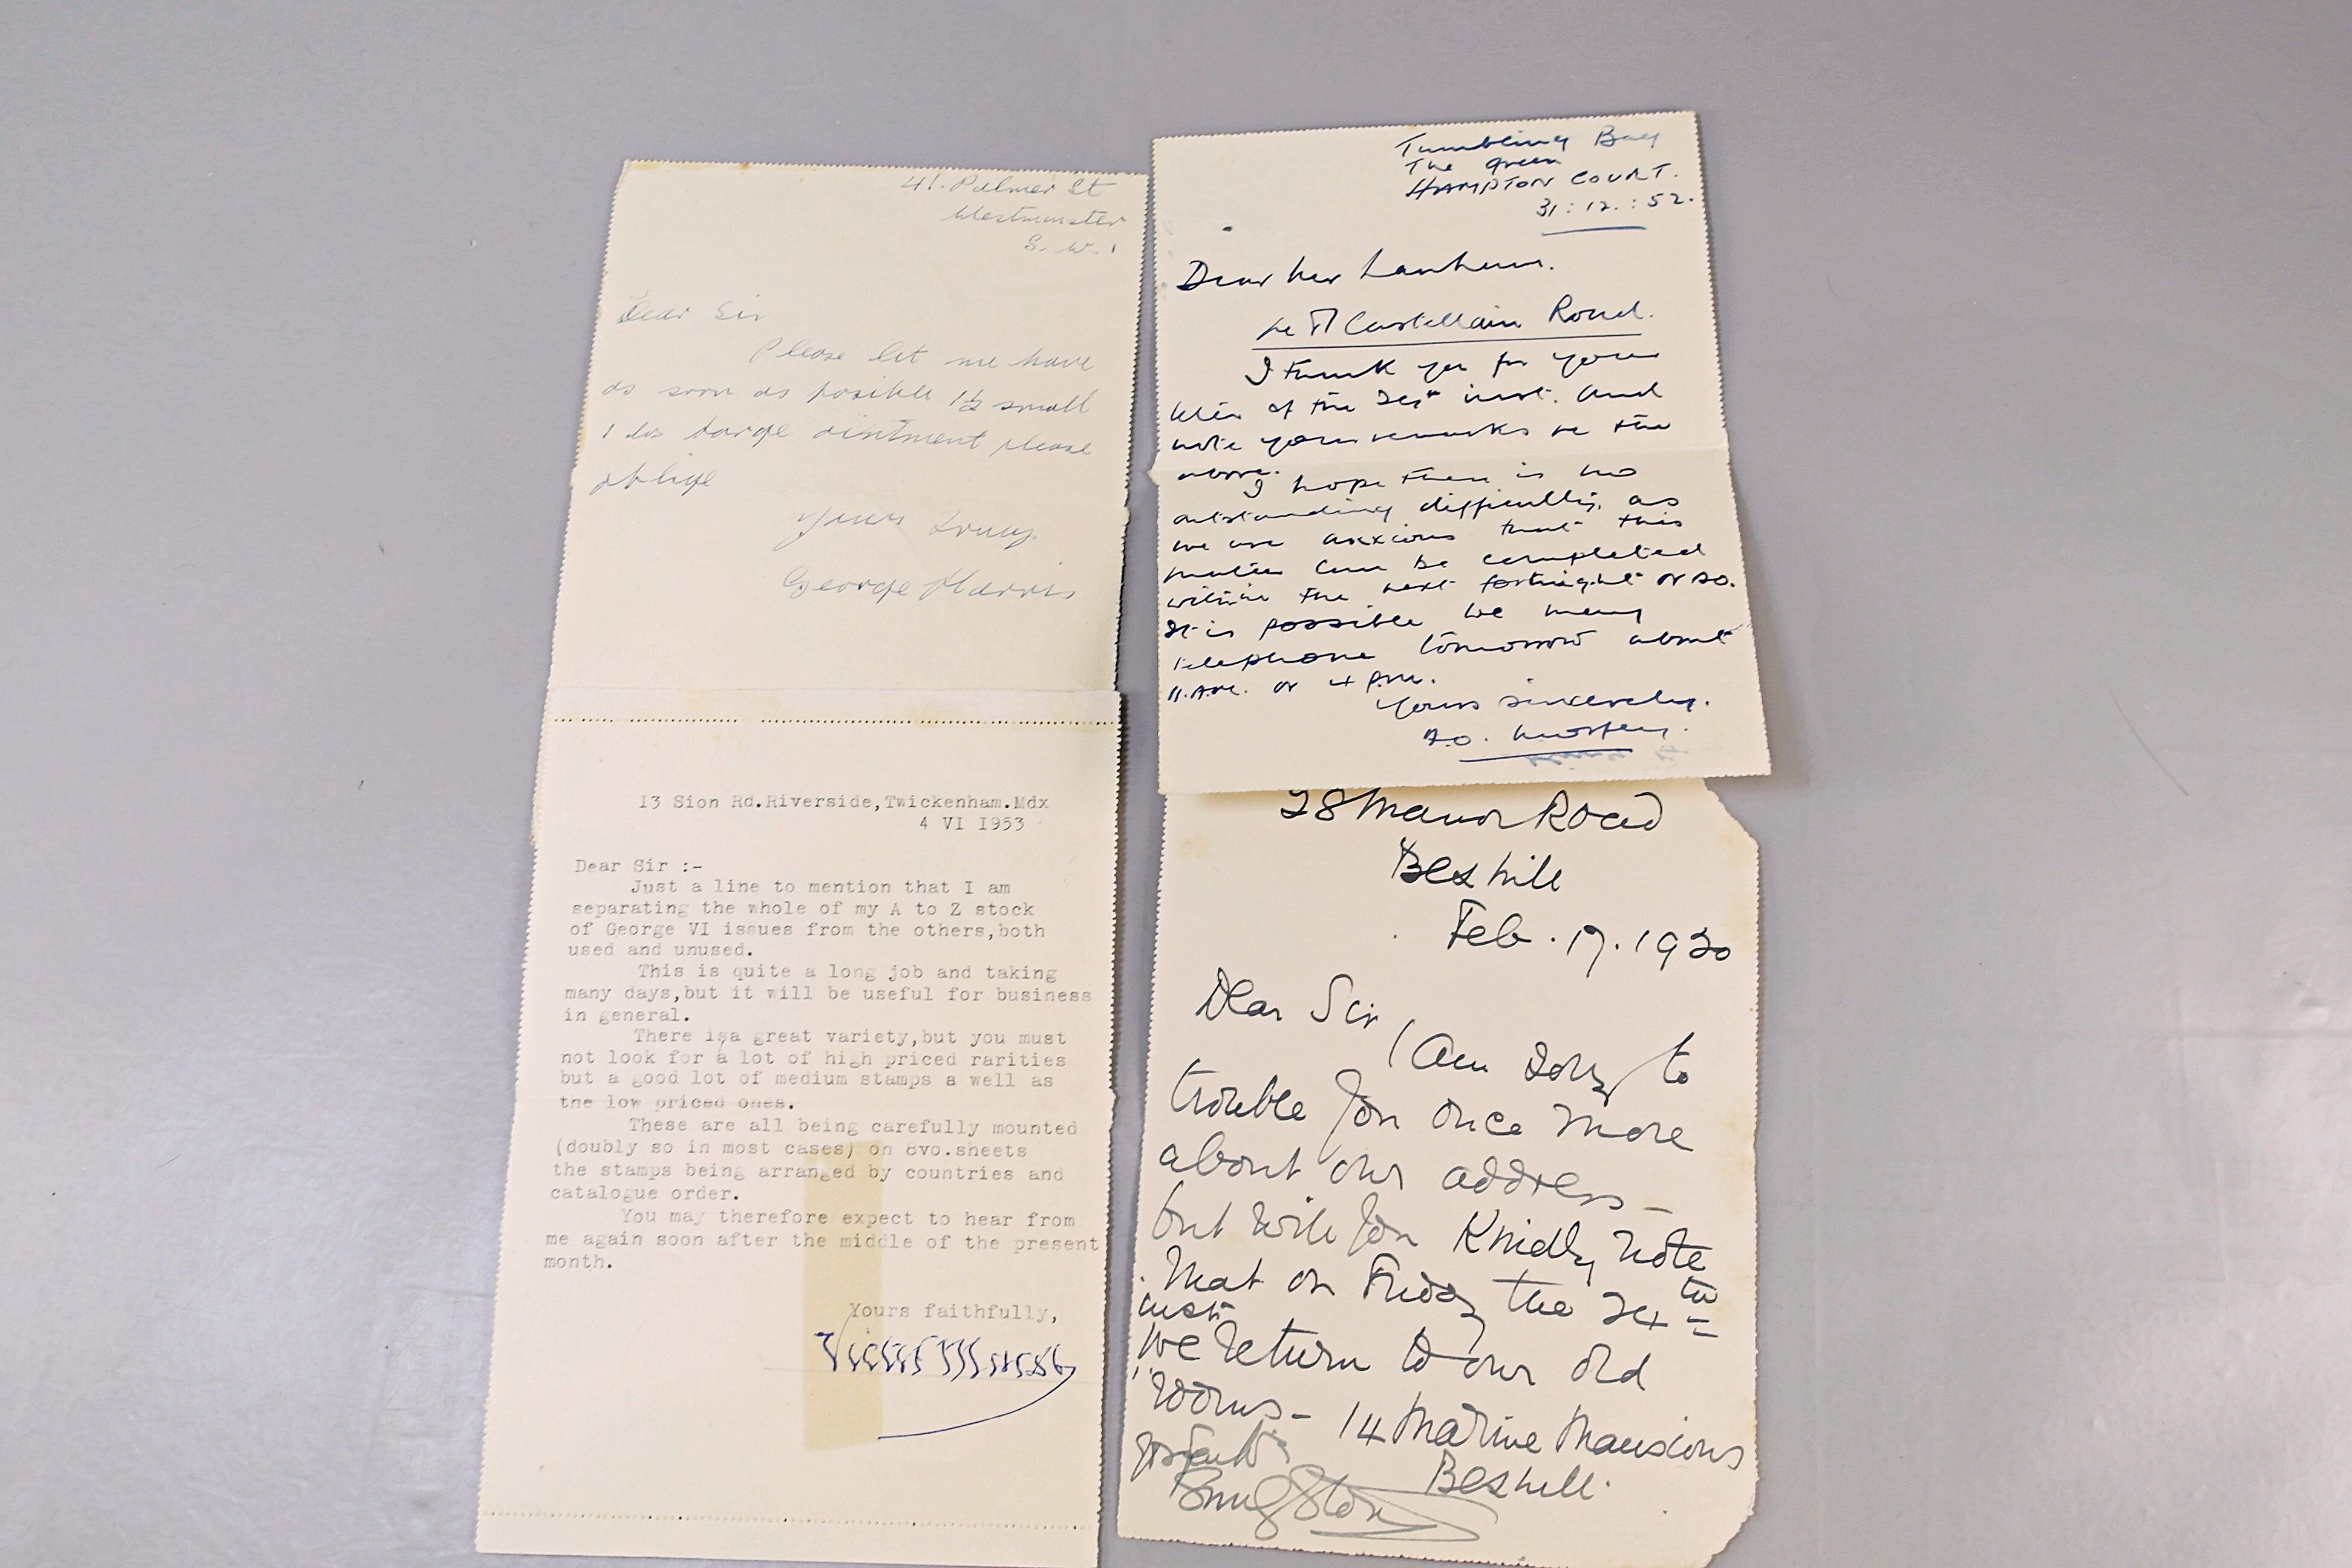 41. Palmer St
Westminster
S. W. 1
Dear Sir
Please let me have
as soon as posible 1½ small
1 large ointment please
oblige
Yours Truly
George Harris
13 Sion Rd.Riverside,Twickenham.Mdx
4 VI 1953
Dear Sir :-
Just a line to mention that I am
separating the whole of my A to Z stock
of George VI issues from the others,both
used and unused.
This is quite a long job and taking
many days,but it will be useful for business
in general.
There isa great variety,but you must
not look for a lot of high priced rarities
but a good lot of medium stamps a well as
the low priced ones.
These are all being carefully mounted
(doubly so in most cases) on 8vo.sheets
the stamps being arranged by countries and
catalogue order.
You may therefore expect to hear from
me again soon after the middle of the present
month.
Yours faithfully,
Tumbling Bay
The Green
HAMPTON COURT.
31 : 12. : 52.
Dear Mr
Castellain Road.
I thank you for your
letter of the inst. and
note your remarks re the
above.
I hope there is no
outstanding difficulty, as
we are anxious that this
matter can be completed
within the next fortnight or so.
It is possible we may
telephone tomorrow about
11.A.M. or 4 P.M.
Yours sincerely.
28 Manor Road
Bexhill
Feb. 17. 1930
Dear Sir
I am sorry to
trouble you once more
about our address –
but will you Kindly note
that on Friday the
inst.
we return to our old
rooms – 14 Marine Mansions
Bexhill.